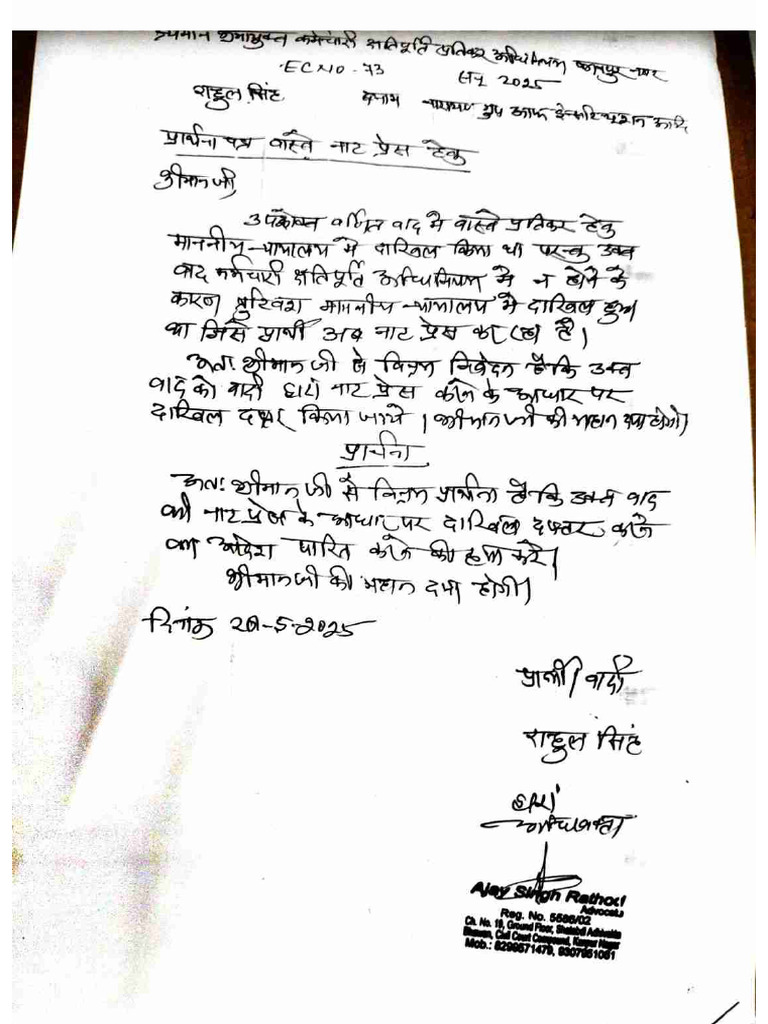 श्रीमान उपश्रमायुक्त कर्मचारी क्षतिपूर्ति प्रतिकर अधिनियम कानपुर नगर
EC NO - 73 सन् 2025
राहुल सिंह बनाम नारायण ग्रुप आफ इन्स्टिट्यूशन आदि
प्रार्थना पत्र वास्ते नाट प्रेस हेतु
श्रीमान जी,
उपरोक्त वर्णित वाद में वास्ते प्रतिकर हेतु
माननीय न्यायालय में दाखिल किया था परन्तु उक्त
वाद कर्मचारी क्षतिपूर्ति अधिनियम में न होने के
कारण त्रुटिवश माननीय न्यायालय में दाखिल हुआ
था जिसे प्रार्थी अब नाट प्रेस कर रहा है।
अतः श्रीमान जी से विनम्र निवेदन है कि उक्त
वाद को वादी द्वारा नाट प्रेस करने के आधार पर
दाखिल दफ्तर किया जाये। श्रीमान जी की महान दया होगी।
प्रार्थना
अतः श्रीमान जी से विनम्र प्रार्थना है कि उक्त वाद
को नाट प्रेस के आधार पर दाखिल दफ्तर करने
का आदेश पारित करने की कृपा करें।
श्रीमान जी की महान दया होगी।
दिनांक 20-5-2025
प्रार्थी / वादी
राहुल सिंह
द्वारा
अधिवक्ता
Ajay Singh Rathod
Advocate
Reg. No. 5586/02
Ch. No. 19, Ground Floor, Shatabdi Adhivakta
Bhawan, Civil Court Compound, Kanpur Nagar
Mob.: 8299571479, 9307951061